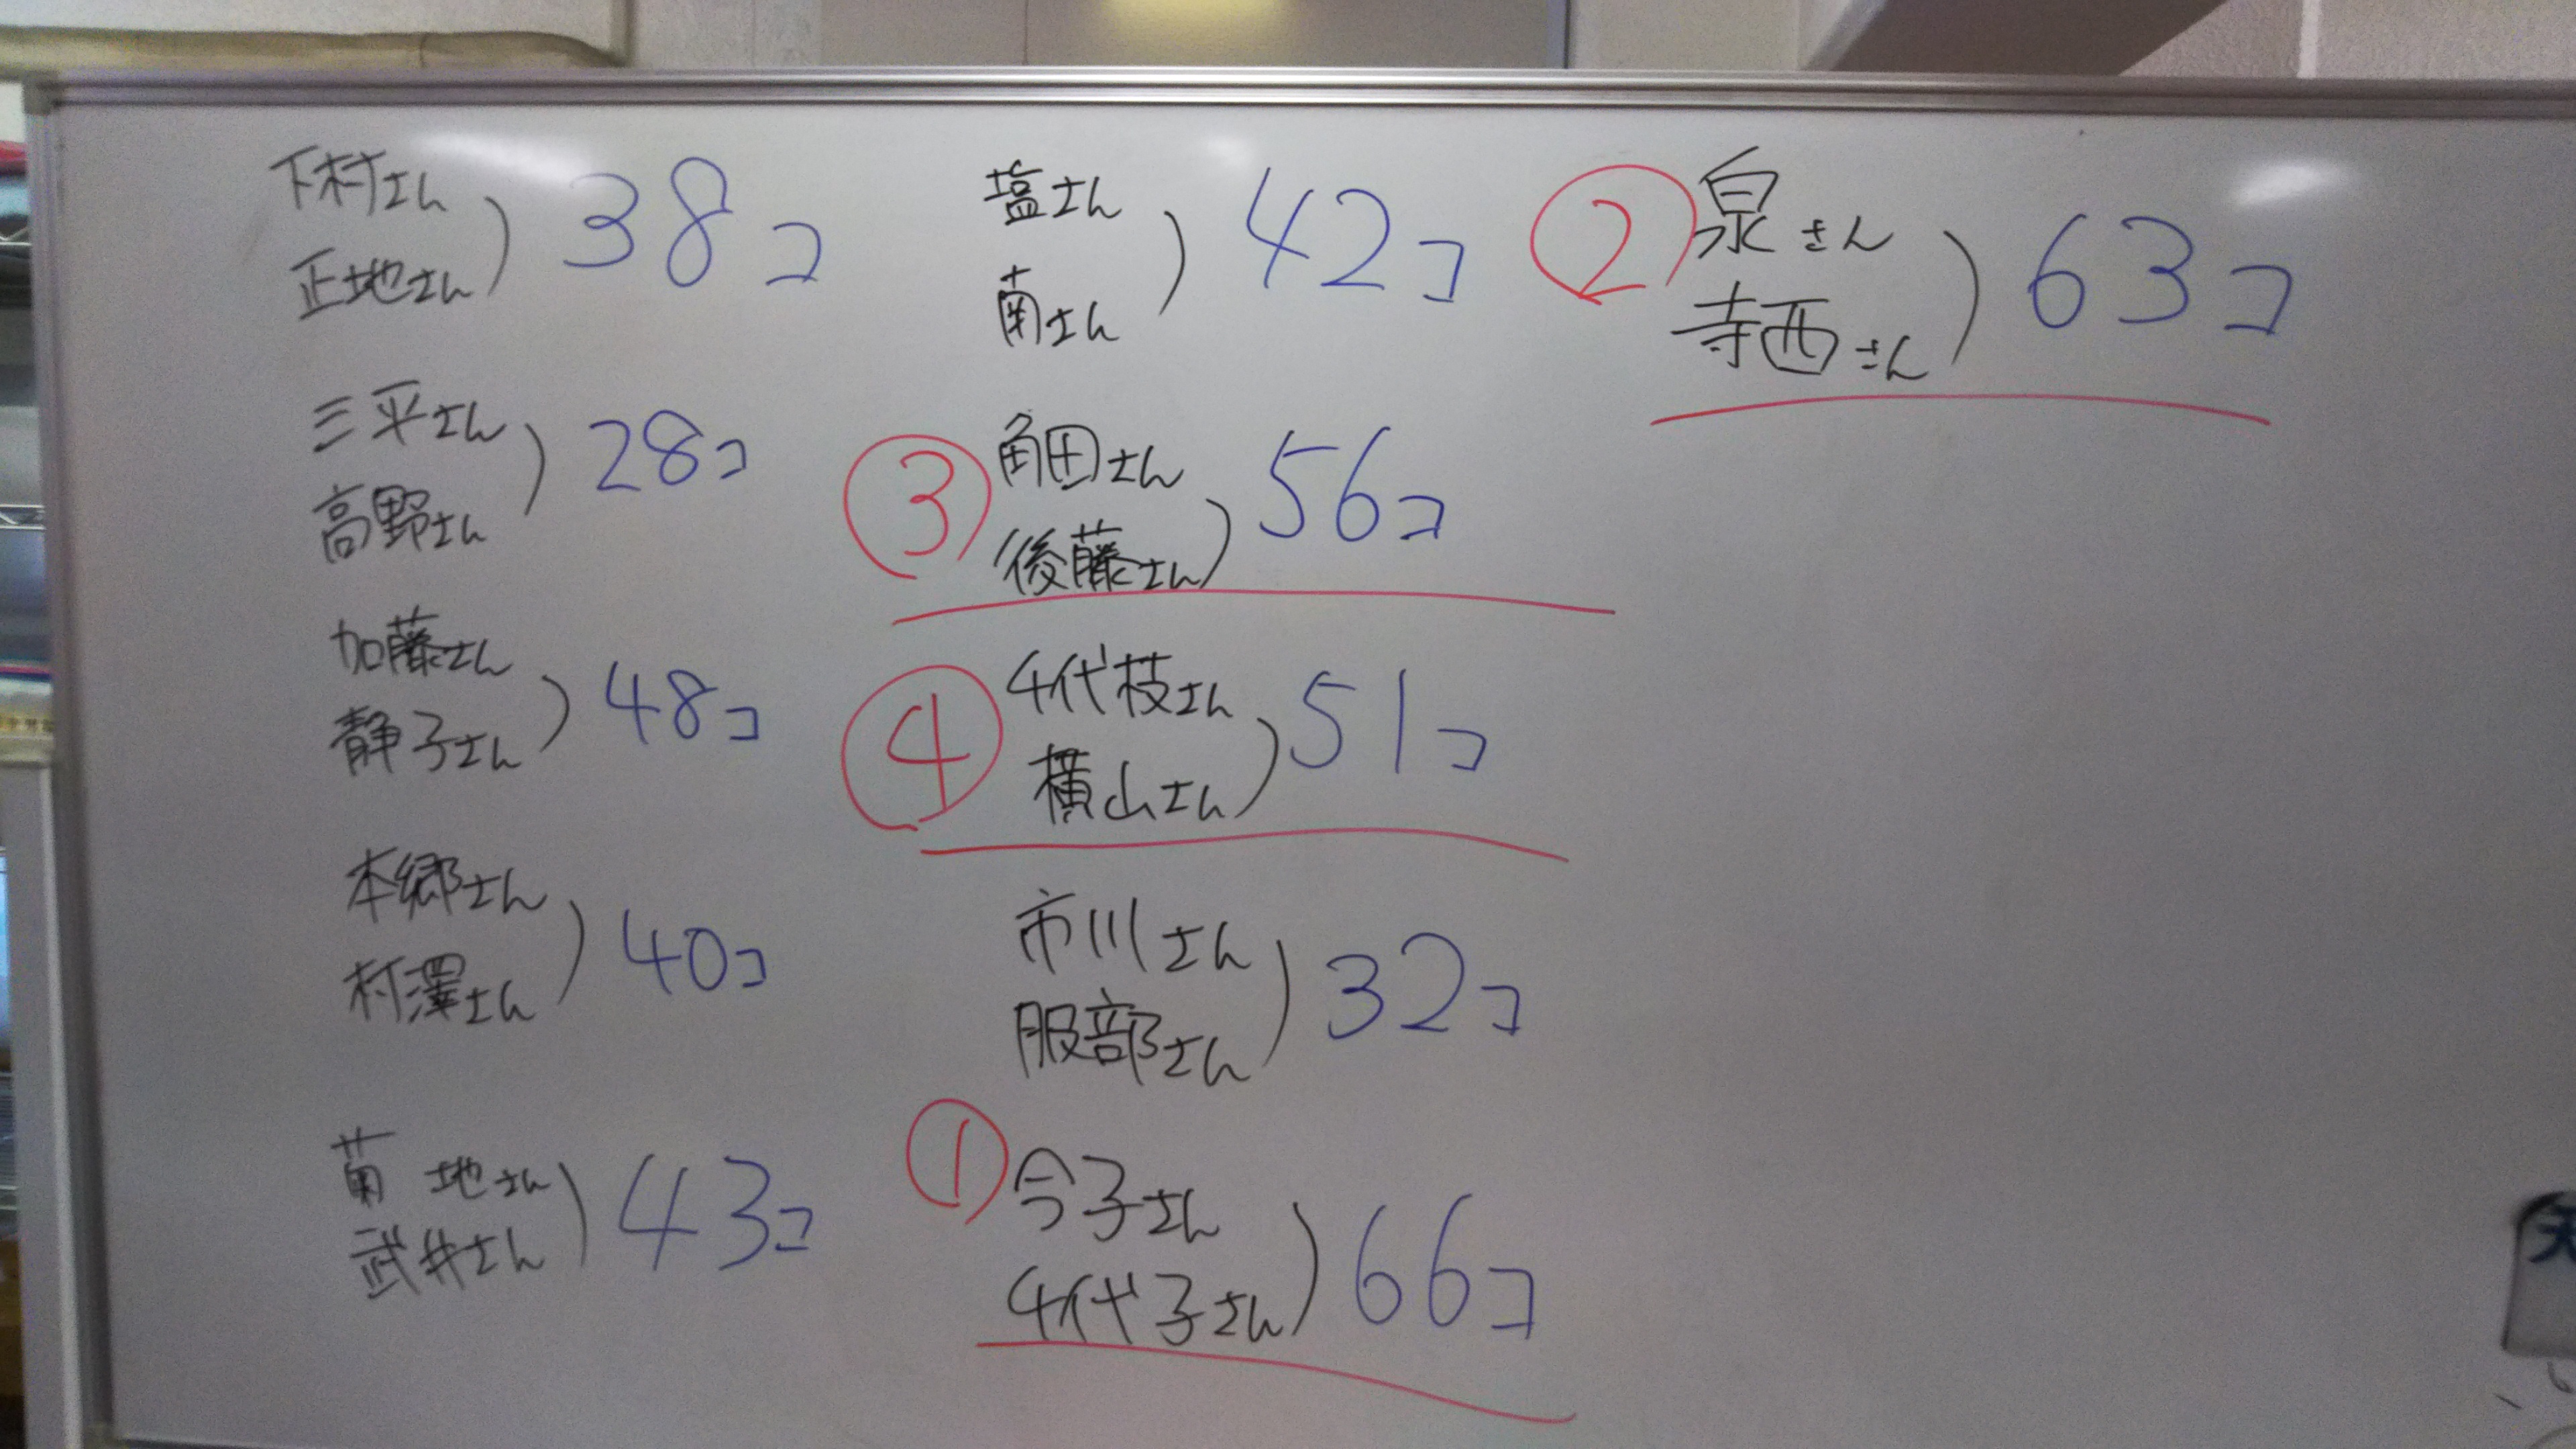 下村さん
正地さん
) 38コ
三平さん
高野さん
) 28コ
加藤さん
静子さん
) 48コ
本郷さん
村澤さん
) 40コ
菊地さん
武井さん
) 43コ
塩さん
南さん
) 42コ
③ 角田さん
後藤さん
) 56コ
④ 千代枝さん
横山さん
) 51コ
市川さん
服部さん
) 32コ
① 今子さん
千代子さん
) 66コ
② 泉さん
寺西さん
) 63コ